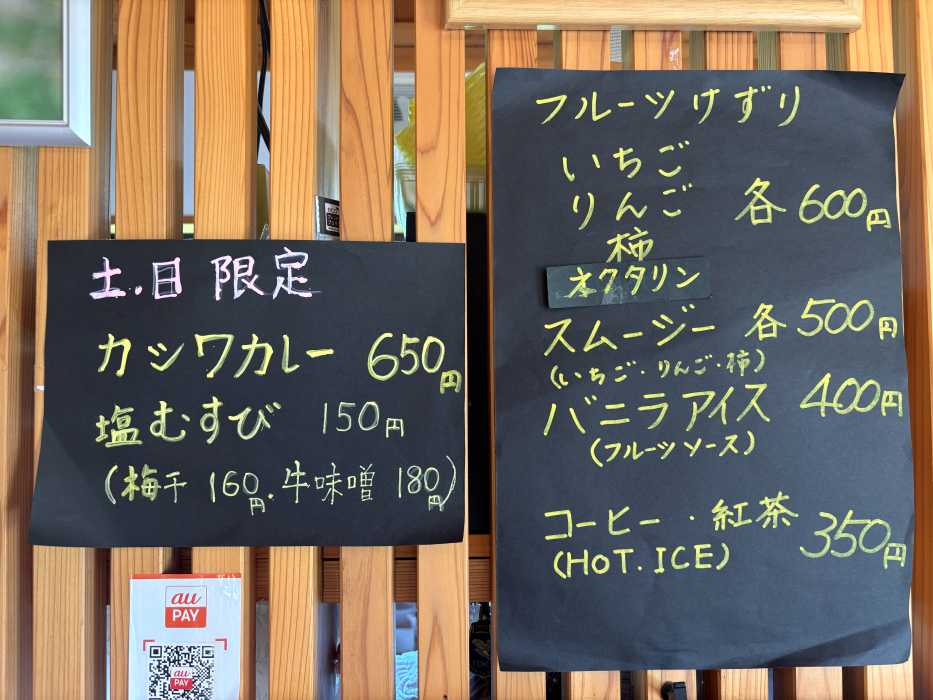 土.日 限定
カシワカレー 650円
塩むすび 150円
(梅干 160円.牛味噌 180円)
au
PAY
au
PAY
フルーツけずり
いちご
りんご 各600円
柿
ネクタリン
スムージー 各500円
(いちご・りんご・柿)
バニラアイス 400円
(フルーツソース)
コーヒー・紅茶 350円
(HOT.ICE)